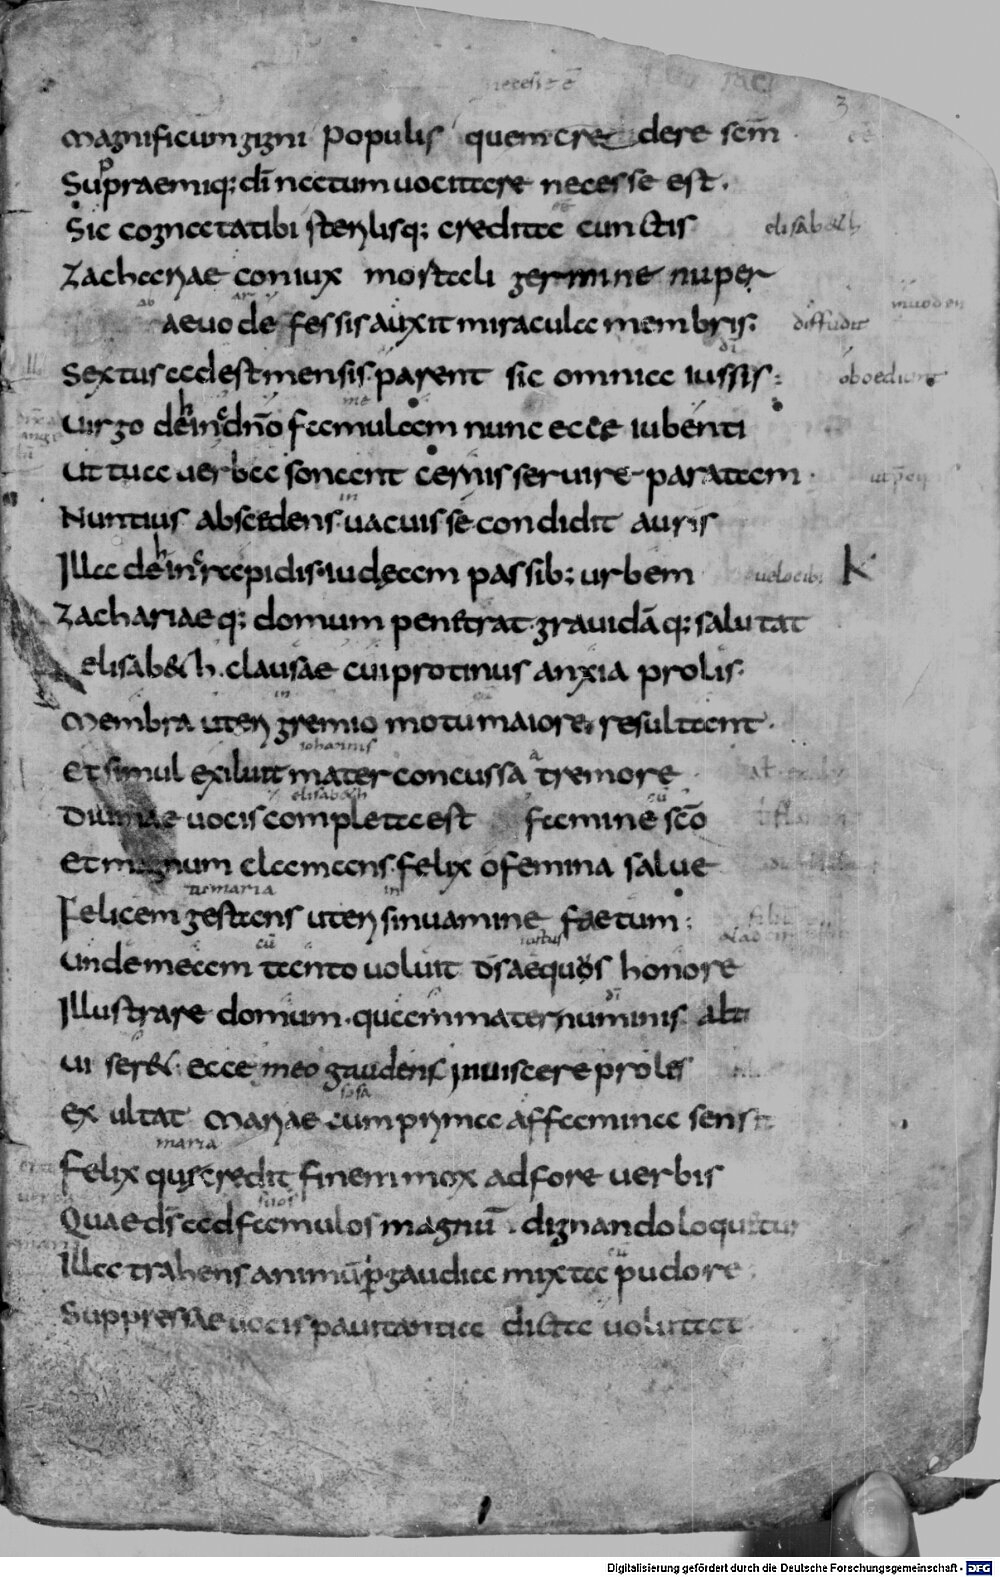 necesse ē
3
magnificum gigni populis quem credere scm̄
Supraemiq; dī natum uocitare necesse est.
Sic cognata tibi sterilisq; credita cunctis
elisab&h
Zachariae coniux mortali germine nuper
aeuo defessis auxit miracula membris:
diffudit
Sextus adest mensis. parent sic omnia iussis:
dī
oboediunt
me
Uirgo dehinc dn̄o famulam nunc ecce iubenti
Ut tua uerba sonant cernis seruire paratam.
in
Nuntius abscedens uacuis se condidit auris
Illa dehinc rapidis iudaeam passib; urbem
uelocib;
K
Zachariaeq; domum penetrat grauidāq; salutat
elisab&h. clausae cui protinus anxia prolis.
in
Membra uteri gremio motu maiore resultant.
iohannis
Et simul exiluit mater concussa tremore
elisab&h
cū
Diuinae uocis completa est famine scō
Et magnum clamans. felix o femina salue
maria
in
Felicem gestans uteri sinuamine faetum:
cū
iustus
Unde meam tanto uoluit ds̄ aequus honore
dī
Illustrare domum. quam mater numinis alti
Ui ser&. ecce meo gaudens in uiscere proles
Ex ultat Mariae cum prima affamina sensit
maria
Felix qui credit finem mox adfore uerbis
suos
Quae ds̄ ad famulos magnū. dignando loquetur
cū
Illa trahens animū p gaudia mixta pudore
Suppressae uocis pauitantia dicta uolutat
Digitalisierung gefördert durch die Deutsche Forschungsgemeinschaft - DFG